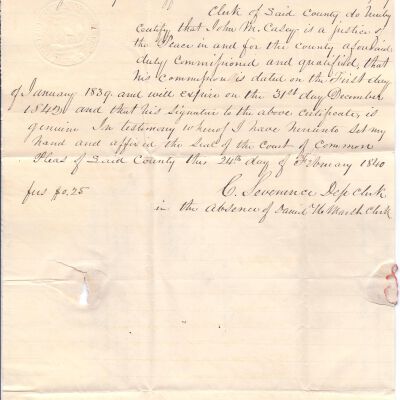 Clerk of Said County do hereby
Certify that John M. Casey is a justice of
the Peace in and for the County aforesaid
duly Commissioned and qualified, that
his Commission is dated on the First day
of January 1839 and will expire on the 31st day December
1842 and that his Signature to the above Certificate, is
genuine In testimony whereof I have hereunto Set my
hand and affixed the Seal of the Court of Common
Pleas of Said County this 24th day of February 1840
fees $0.25
C. Severence Dep Clerk
in the absence of Marsh Clerk